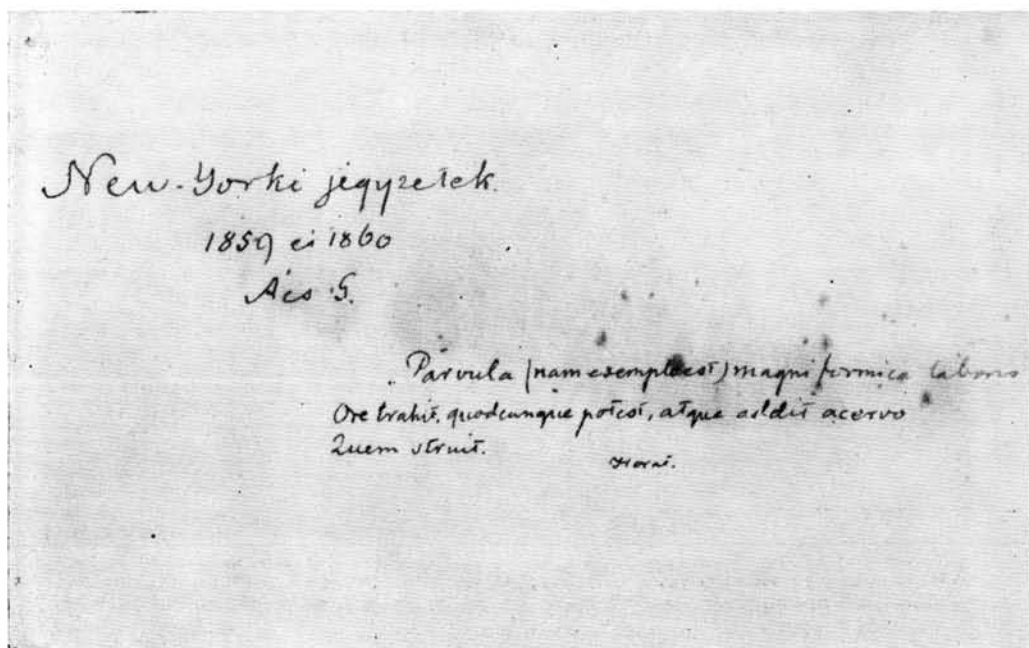 New-Yorki jegyzetek.
1859 és 1860
Ács G.
„Parvula (nam exemplo est) magni formica laboris
Ore trahit, quodcunque potest, atque addit acervo
Quem struit.
Horat.